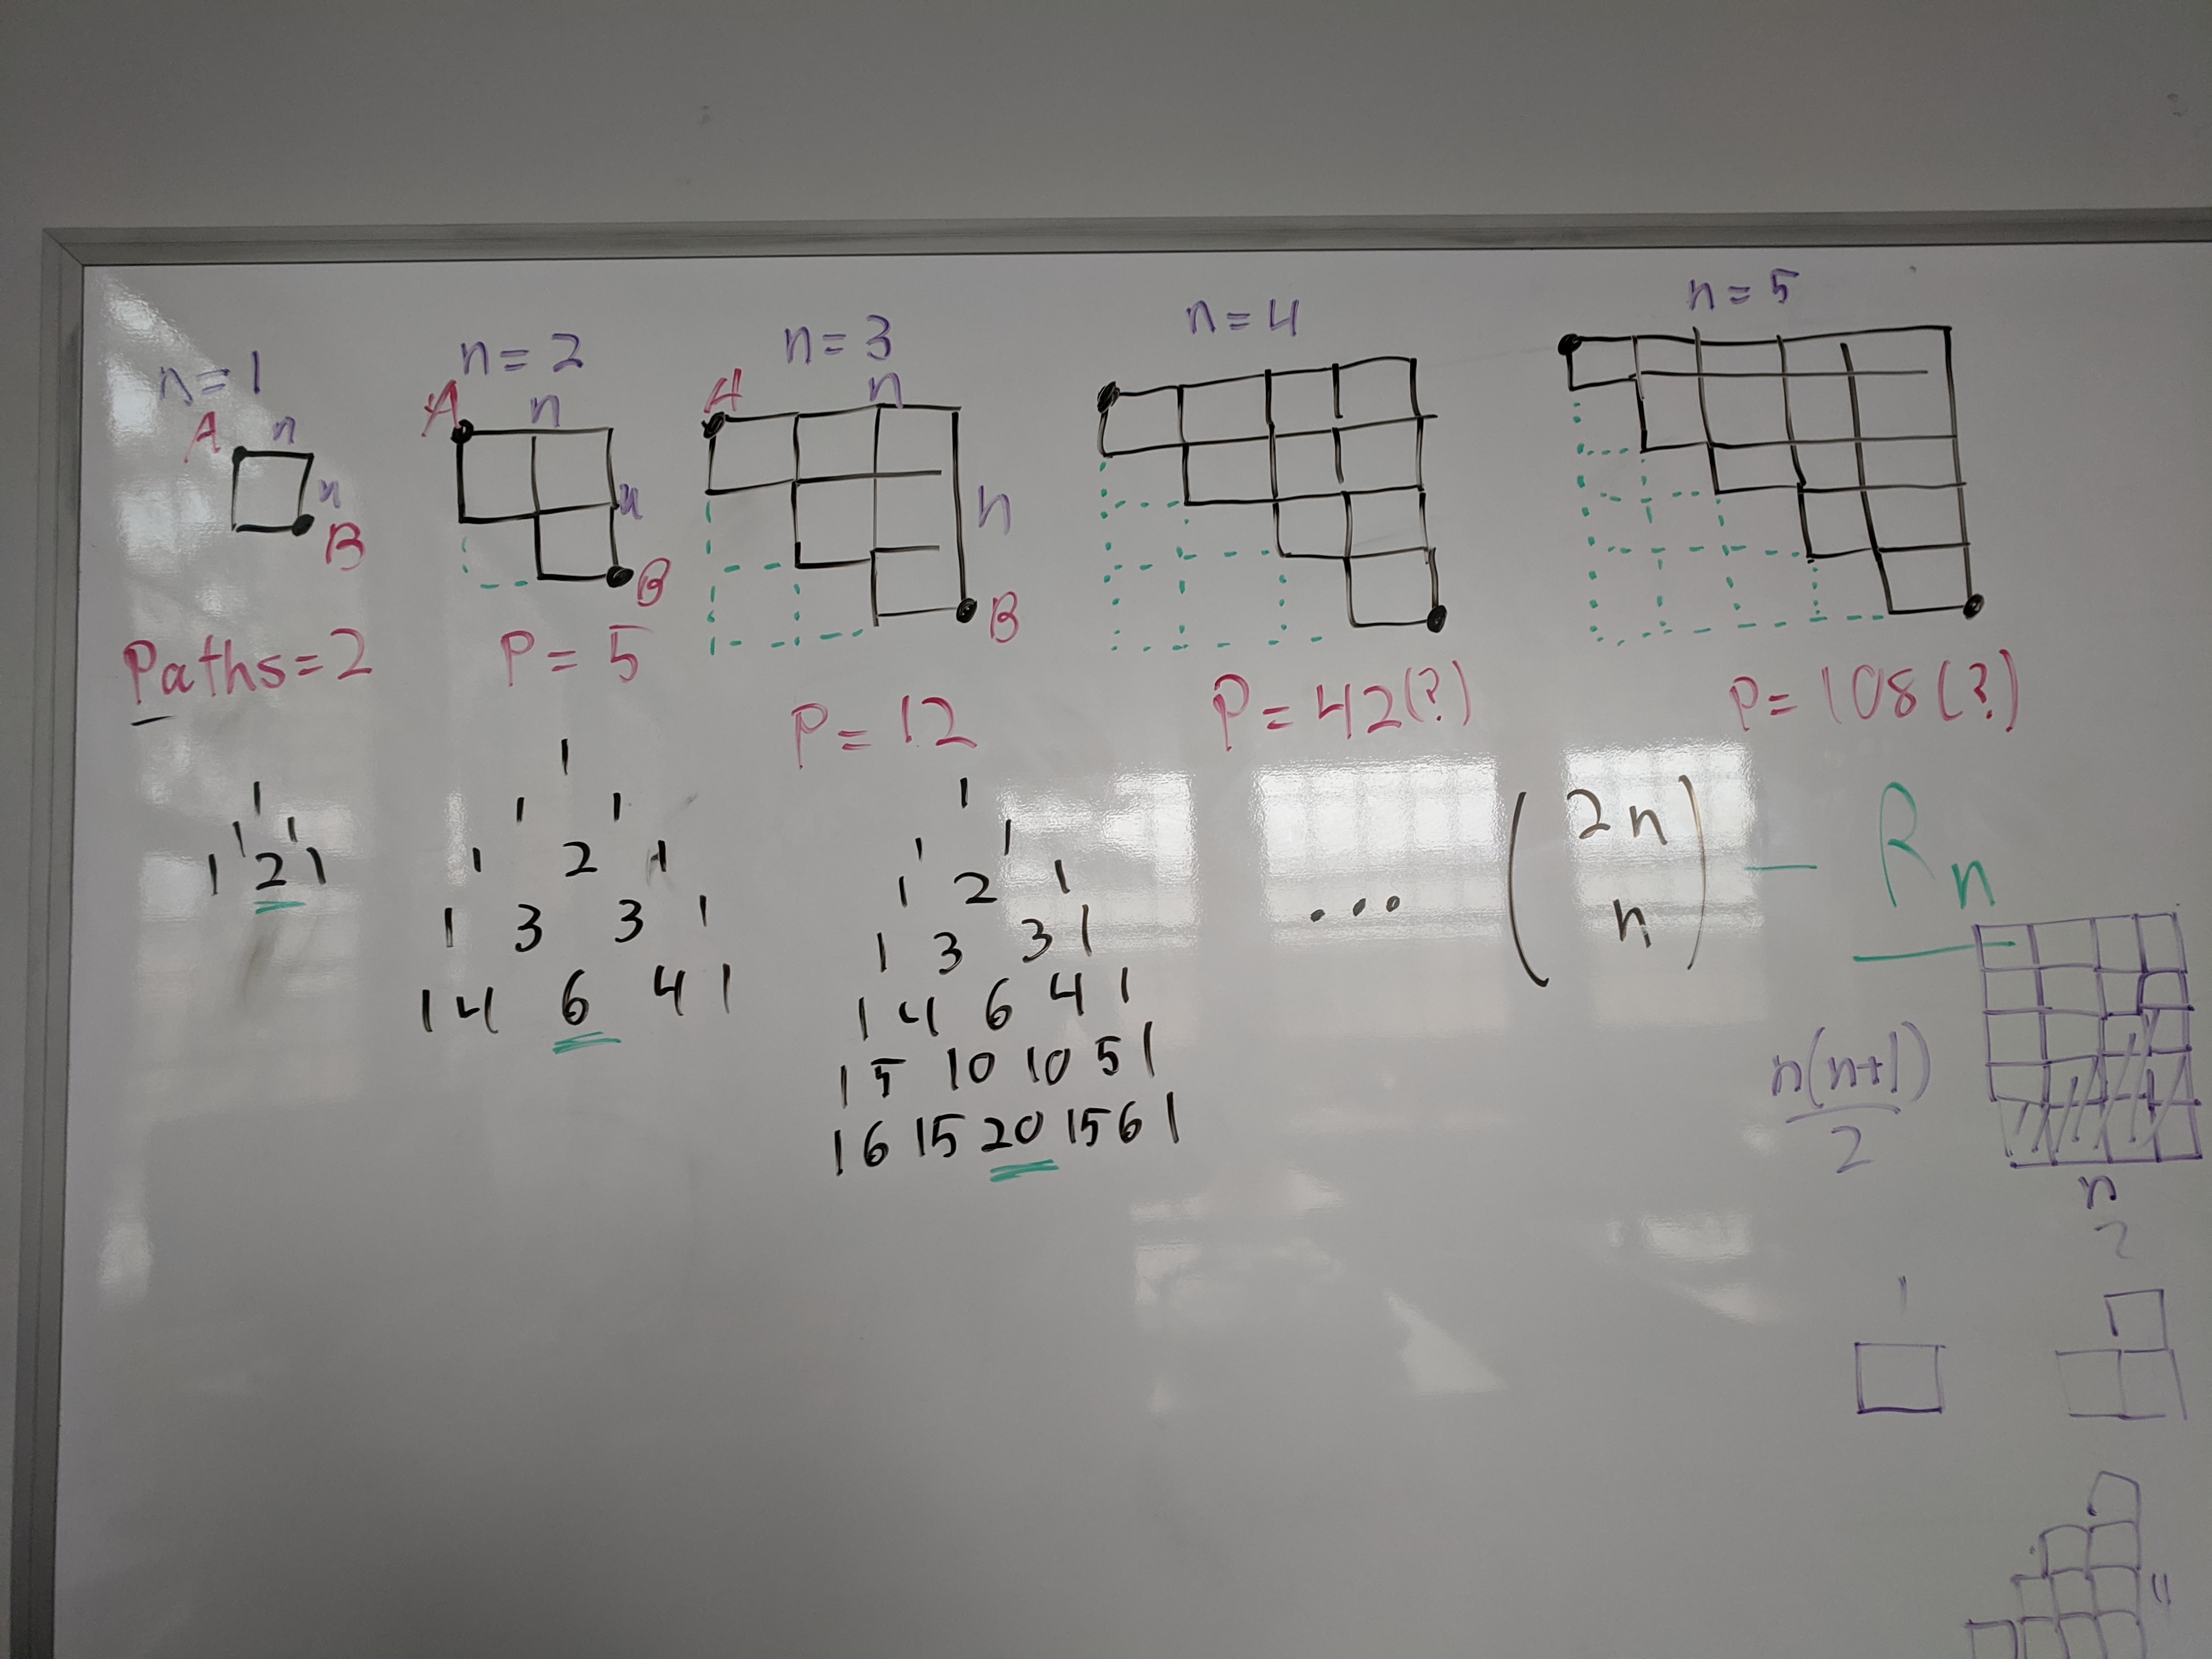 n=1
A n
n
B
Paths=2
1
1 1
1 2 1
n=2
A n
n
B
P=5
1
1 1
1 2 1
1 3 3 1
1 4 6 4 1
n=3
A n
n
B
P=12
1
1 1
1 2 1
1 3 3 1
1 4 6 4 1
1 5 10 10 5 1
1 6 15 20 15 6 1
n=4
P=42(?)
...
n=5
P=108(?)
(2n
n) - Rn
n(n+1)
2
n
1
2